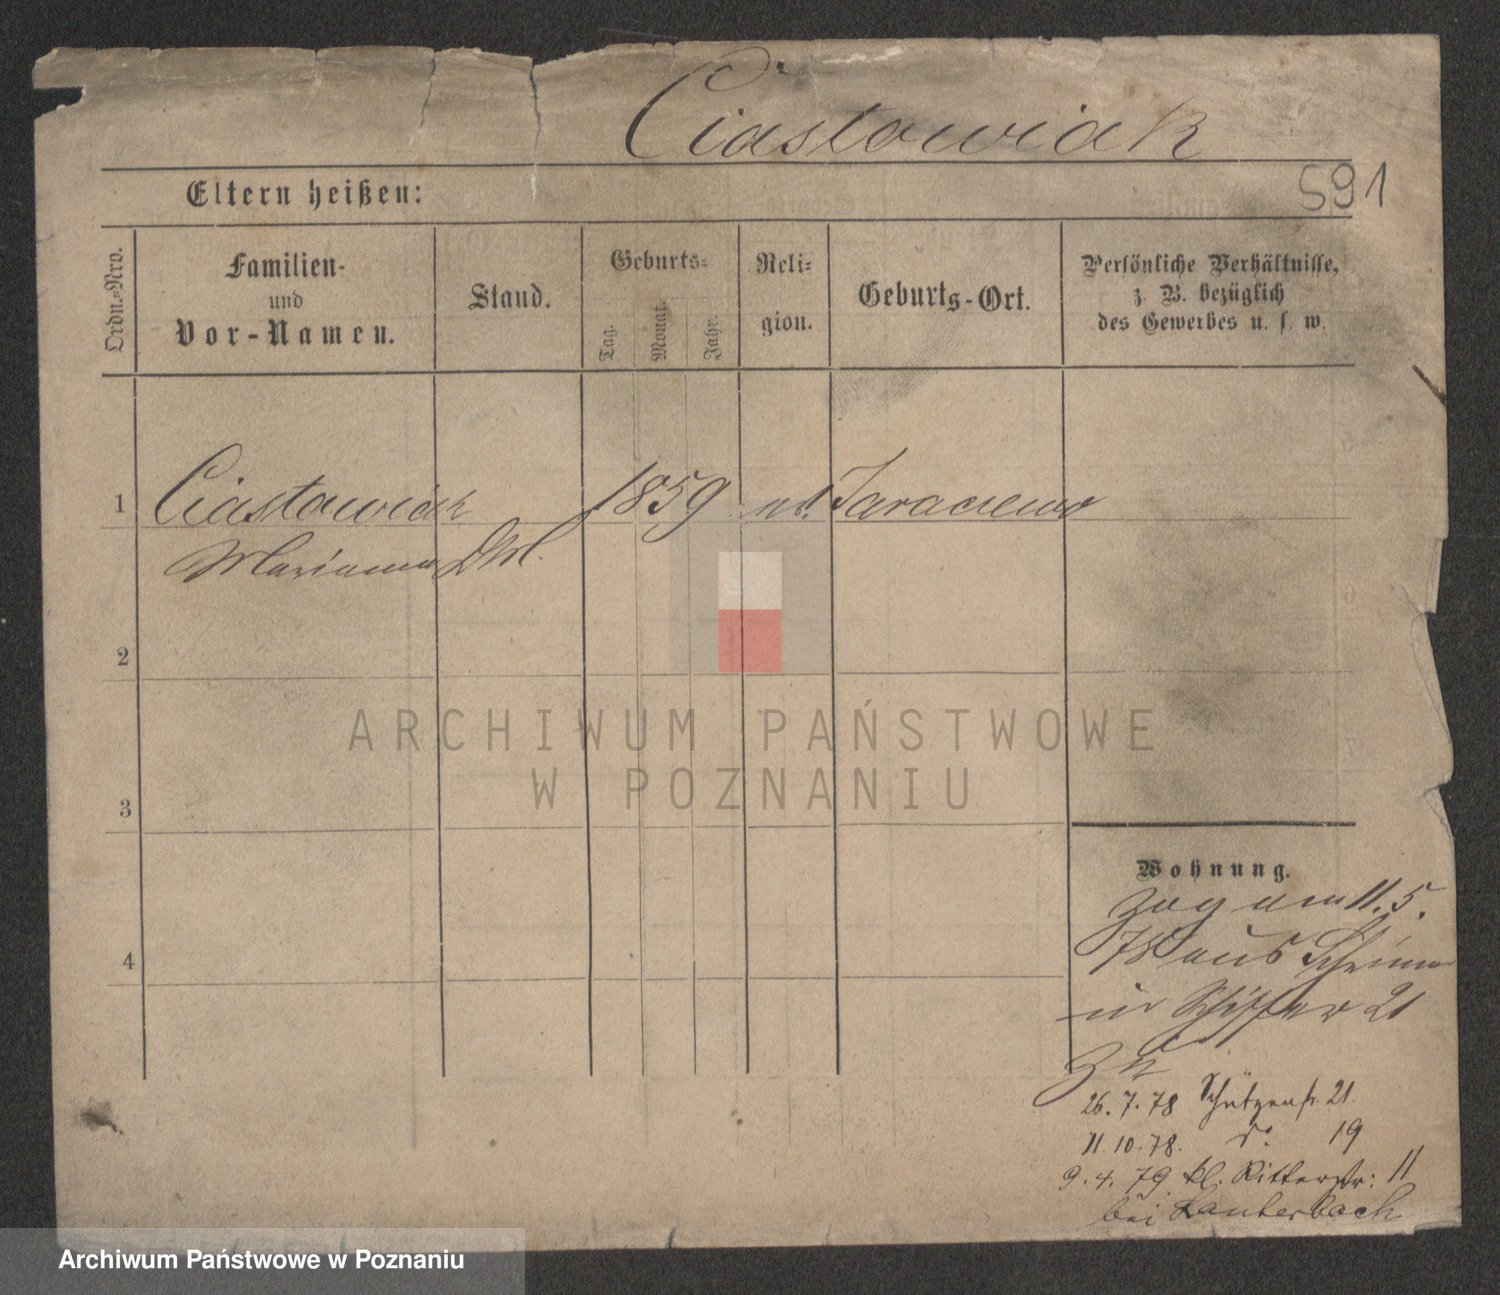 Ciastowiak
591
Eltern heißen:
Ordn.-Nro.
Familien-
und
Vor-Namen.
Stand.
Geburts-
Tag.
Monat.
Jahr.
Reli-
gion.
Geburts-Ort.
Persönliche Verhältnisse,
z. B. bezüglich
des Gewerbes u. s. w.
1 Ciastowiak 1859 Jaraczewo
Marianna
2
3
4
ARCHIWUM PAŃSTWOWE
W POZNANIU
Wohnung.
zog am 11.5.
78 aus Schrimm
in Schifferstr 21
26.7.78 Schützenstr. 21.
11.10.78. do 19
9.4.79 kl. Ritterstr: 11
bei Lauterbach
Archiwum Państwowe w Poznaniu